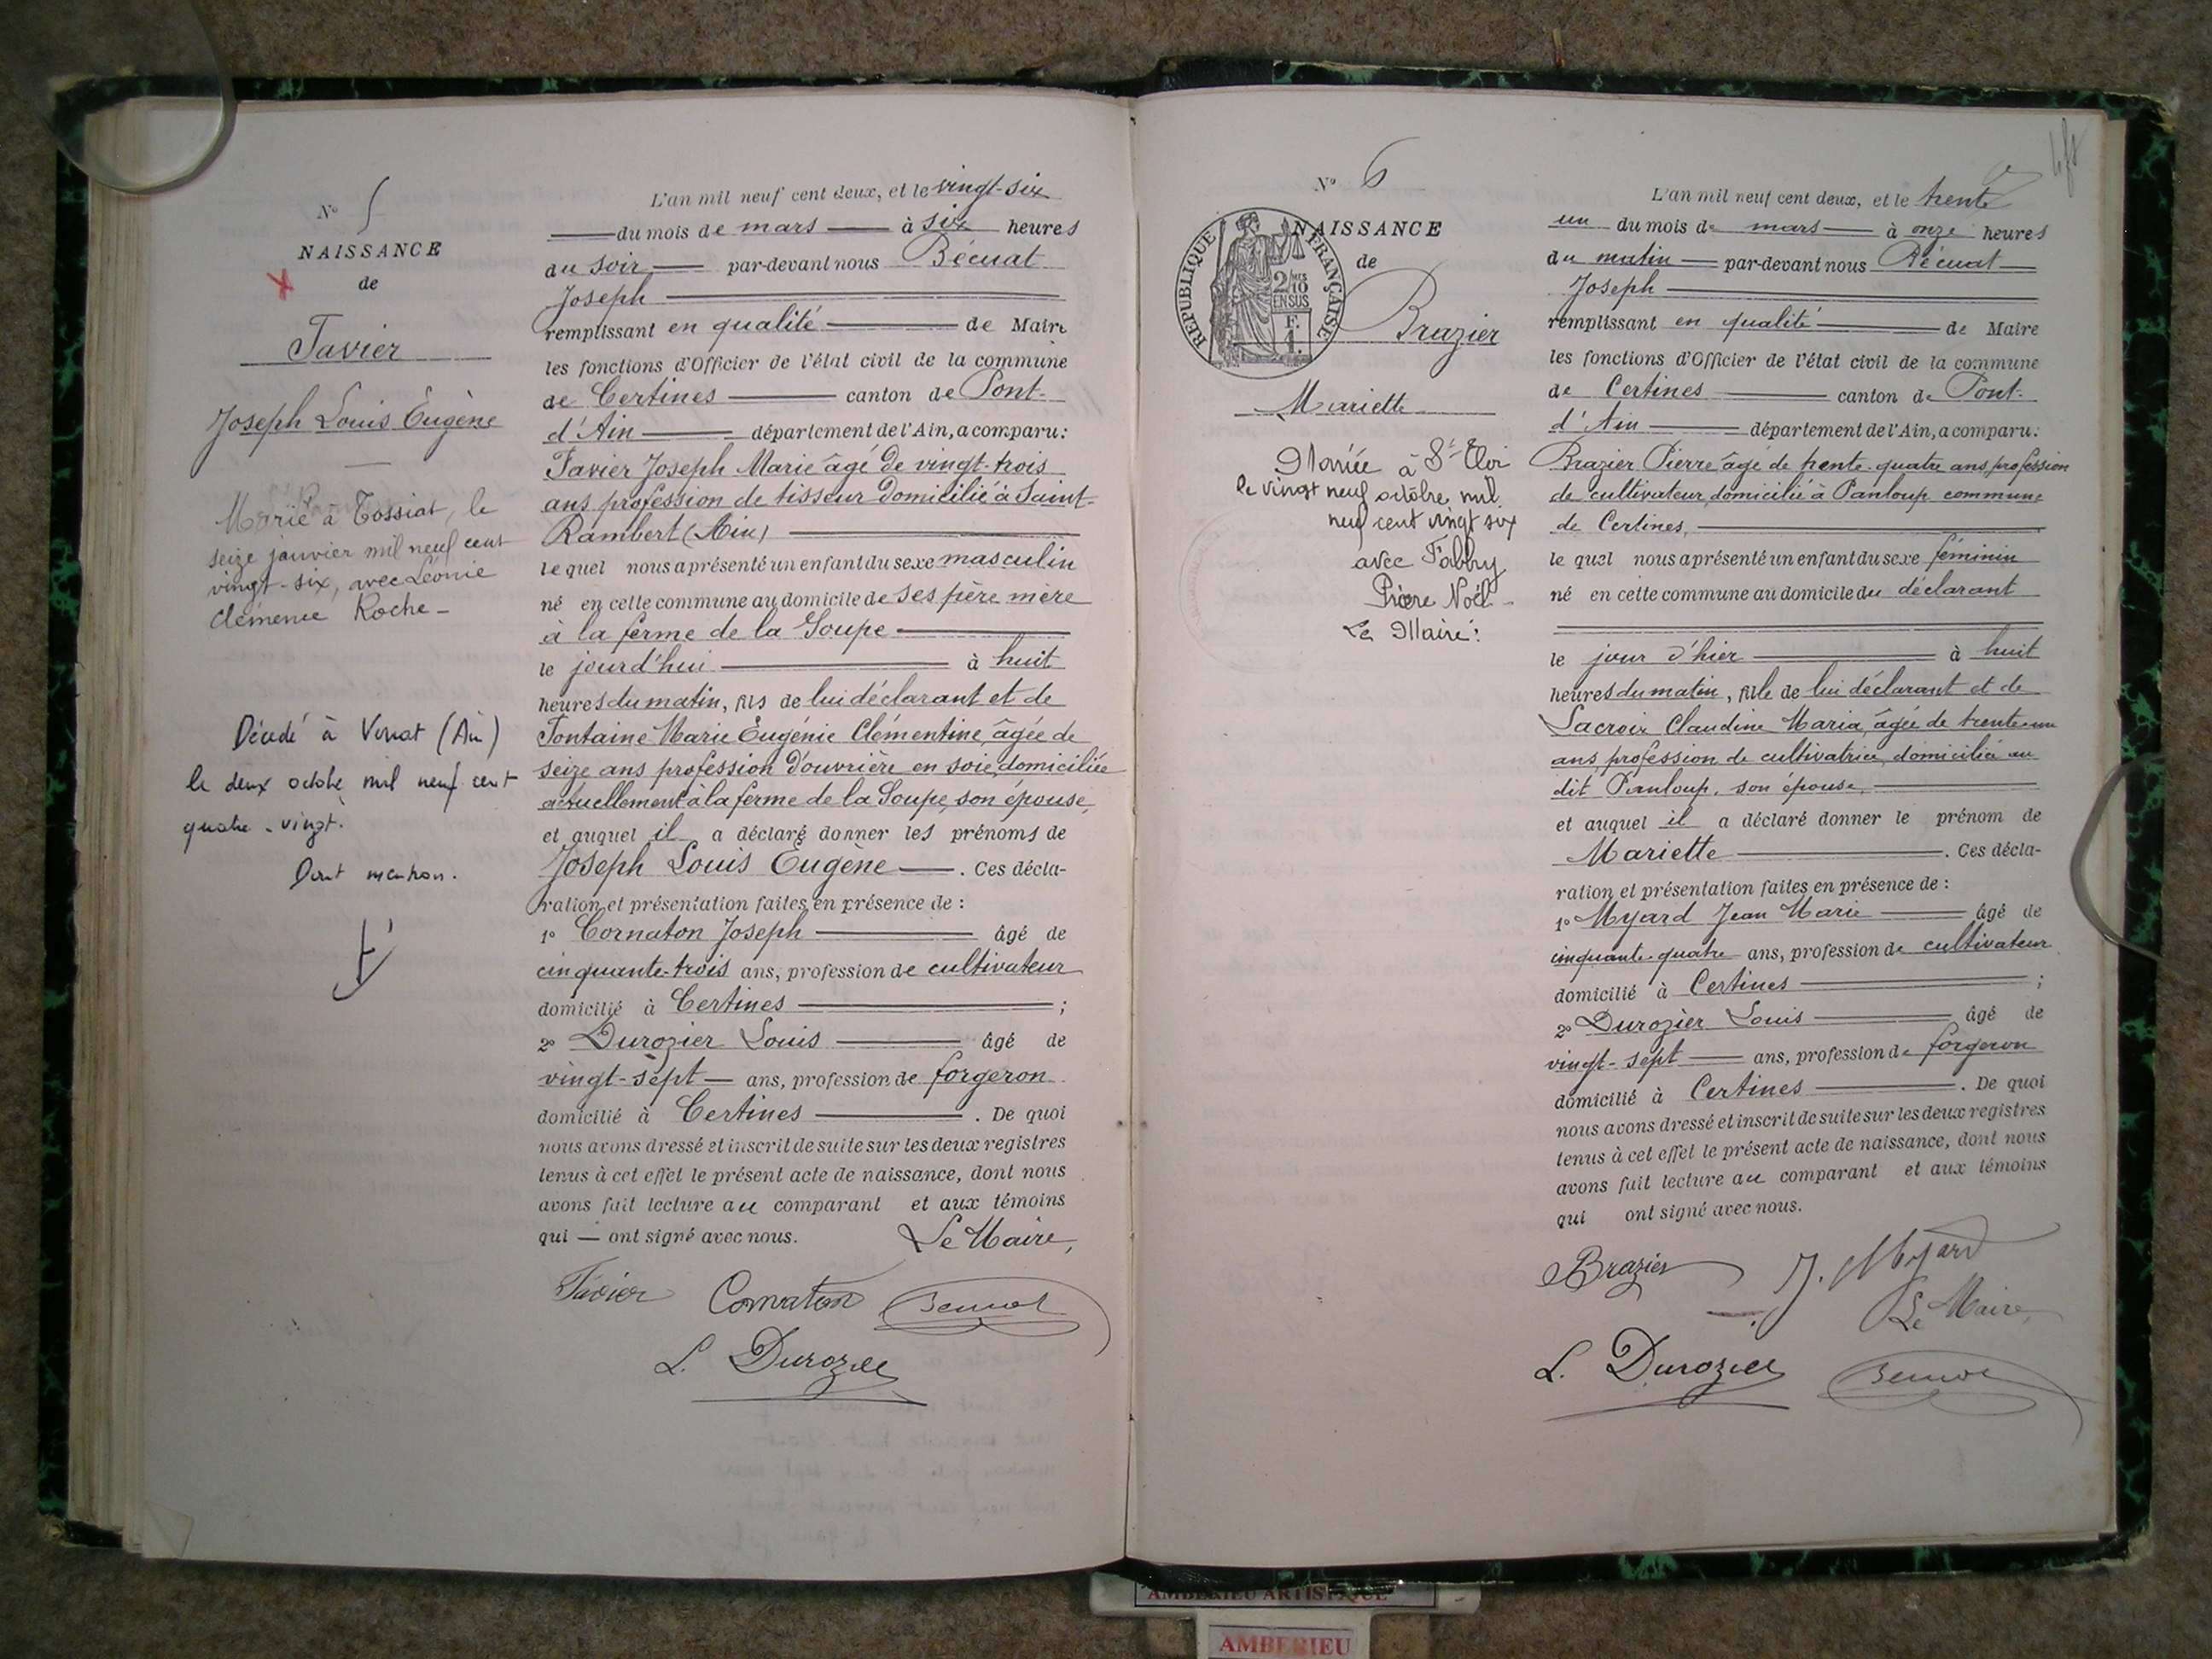 N° 5
NAISSANCE
de
Tavier
Joseph Louis Eugène
Marié à Tossiat, le
seize janvier mil neuf cent
vingt-six, avec Léonie
Clémence Roche -
Décédé à Viriat (Ain)
le deux octobre mil neuf cent
quatre-vingt.
Dont mention.
L'an mil neuf cent deux, et le vingt-six
du mois de mars à six heures
du soir par-devant nous Bécuat
Joseph
remplissant en qualité de Maire
les fonctions d'Officier de l'état civil de la commune
de Certines canton de Pont-
d'Ain département de l'Ain, a comparu:
Tavier Joseph Marie âgé de vingt-trois
ans profession de tisseur domicilié à Saint-
Rambert (Ain)
lequel nous a présenté un enfant du sexe masculin
né en cette commune au domicile de ses père mère
à la ferme de la Soupe
le jourd'hui à huit
heures du matin, fils de lui déclarant et de
Fontaine Marie Eugénie Clémentine, âgée de
seize ans profession d'ouvrière en soie, domiciliée
actuellement à la ferme de la Soupe, son épouse,
et auquel il a déclaré donner les prénoms de
Joseph Louis Eugène. Ces décla-
ration et présentation faites en présence de :
1° Cornaton Joseph âgé de
cinquante-trois ans, profession de cultivateur
domicilié à Certines ;
2° Durozier Louis âgé de
vingt-sept ans, profession de forgeron
domicilié à Certines. De quoi
nous avons dressé et inscrit de suite sur les deux registres
tenus à cet effet le présent acte de naissance, dont nous
avons fait lecture au comparant et aux témoins
qui — ont signé avec nous. Le Maire,
Tavier Cornaton Bécuat
L. Durozier
N° 6
NAISSANCE
de
RÉPUBLIQUE FRANÇAISE
2/10 EN SUS
F. 1.
Brazier
Mariette
Mariée à St Eloi
le vingt neuf octobre mil
neuf cent vingt six
avec Fabby
Pierre Noël -
Le Maire:
L'an mil neuf cent deux, et le trente
un du mois de mars à onze heures
du matin par-devant nous Bécuat
Joseph
remplissant en qualité de Maire
les fonctions d'Officier de l'état civil de la commune
de Certines canton de Pont-
d'Ain département de l'Ain, a comparu:
Brazier Pierre âgé de trente-quatre ans, profession
de cultivateur, domicilié à Panloup, commune
de Certines,
lequel nous a présenté un enfant du sexe féminin
né en cette commune au domicile du déclarant
le jour d'hier à huit
heures du matin, fille de lui déclarant et de
Lacroix Claudine Maria, âgée de trente-un
ans, profession de cultivatrice, domiciliée au
dit Panloup, son épouse,
et auquel il a déclaré donner le prénom de
Mariette. Ces décla-
ration et présentation faites en présence de :
1° Myard Jean Marie âgé de
cinquante-quatre ans, profession de cultivateur
domicilié à Certines ;
2° Durozier Louis âgé de
vingt-sept ans, profession de forgeron
domicilié à Certines. De quoi
nous avons dressé et inscrit de suite sur les deux registres
tenus à cet effet le présent acte de naissance, dont nous
avons fait lecture au comparant et aux témoins
qui ont signé avec nous.
Brazier J. Myard
Le Maire,
L. Durozier Bécuat
AMBERIEU ARTISTIQUE
AMBERIEU